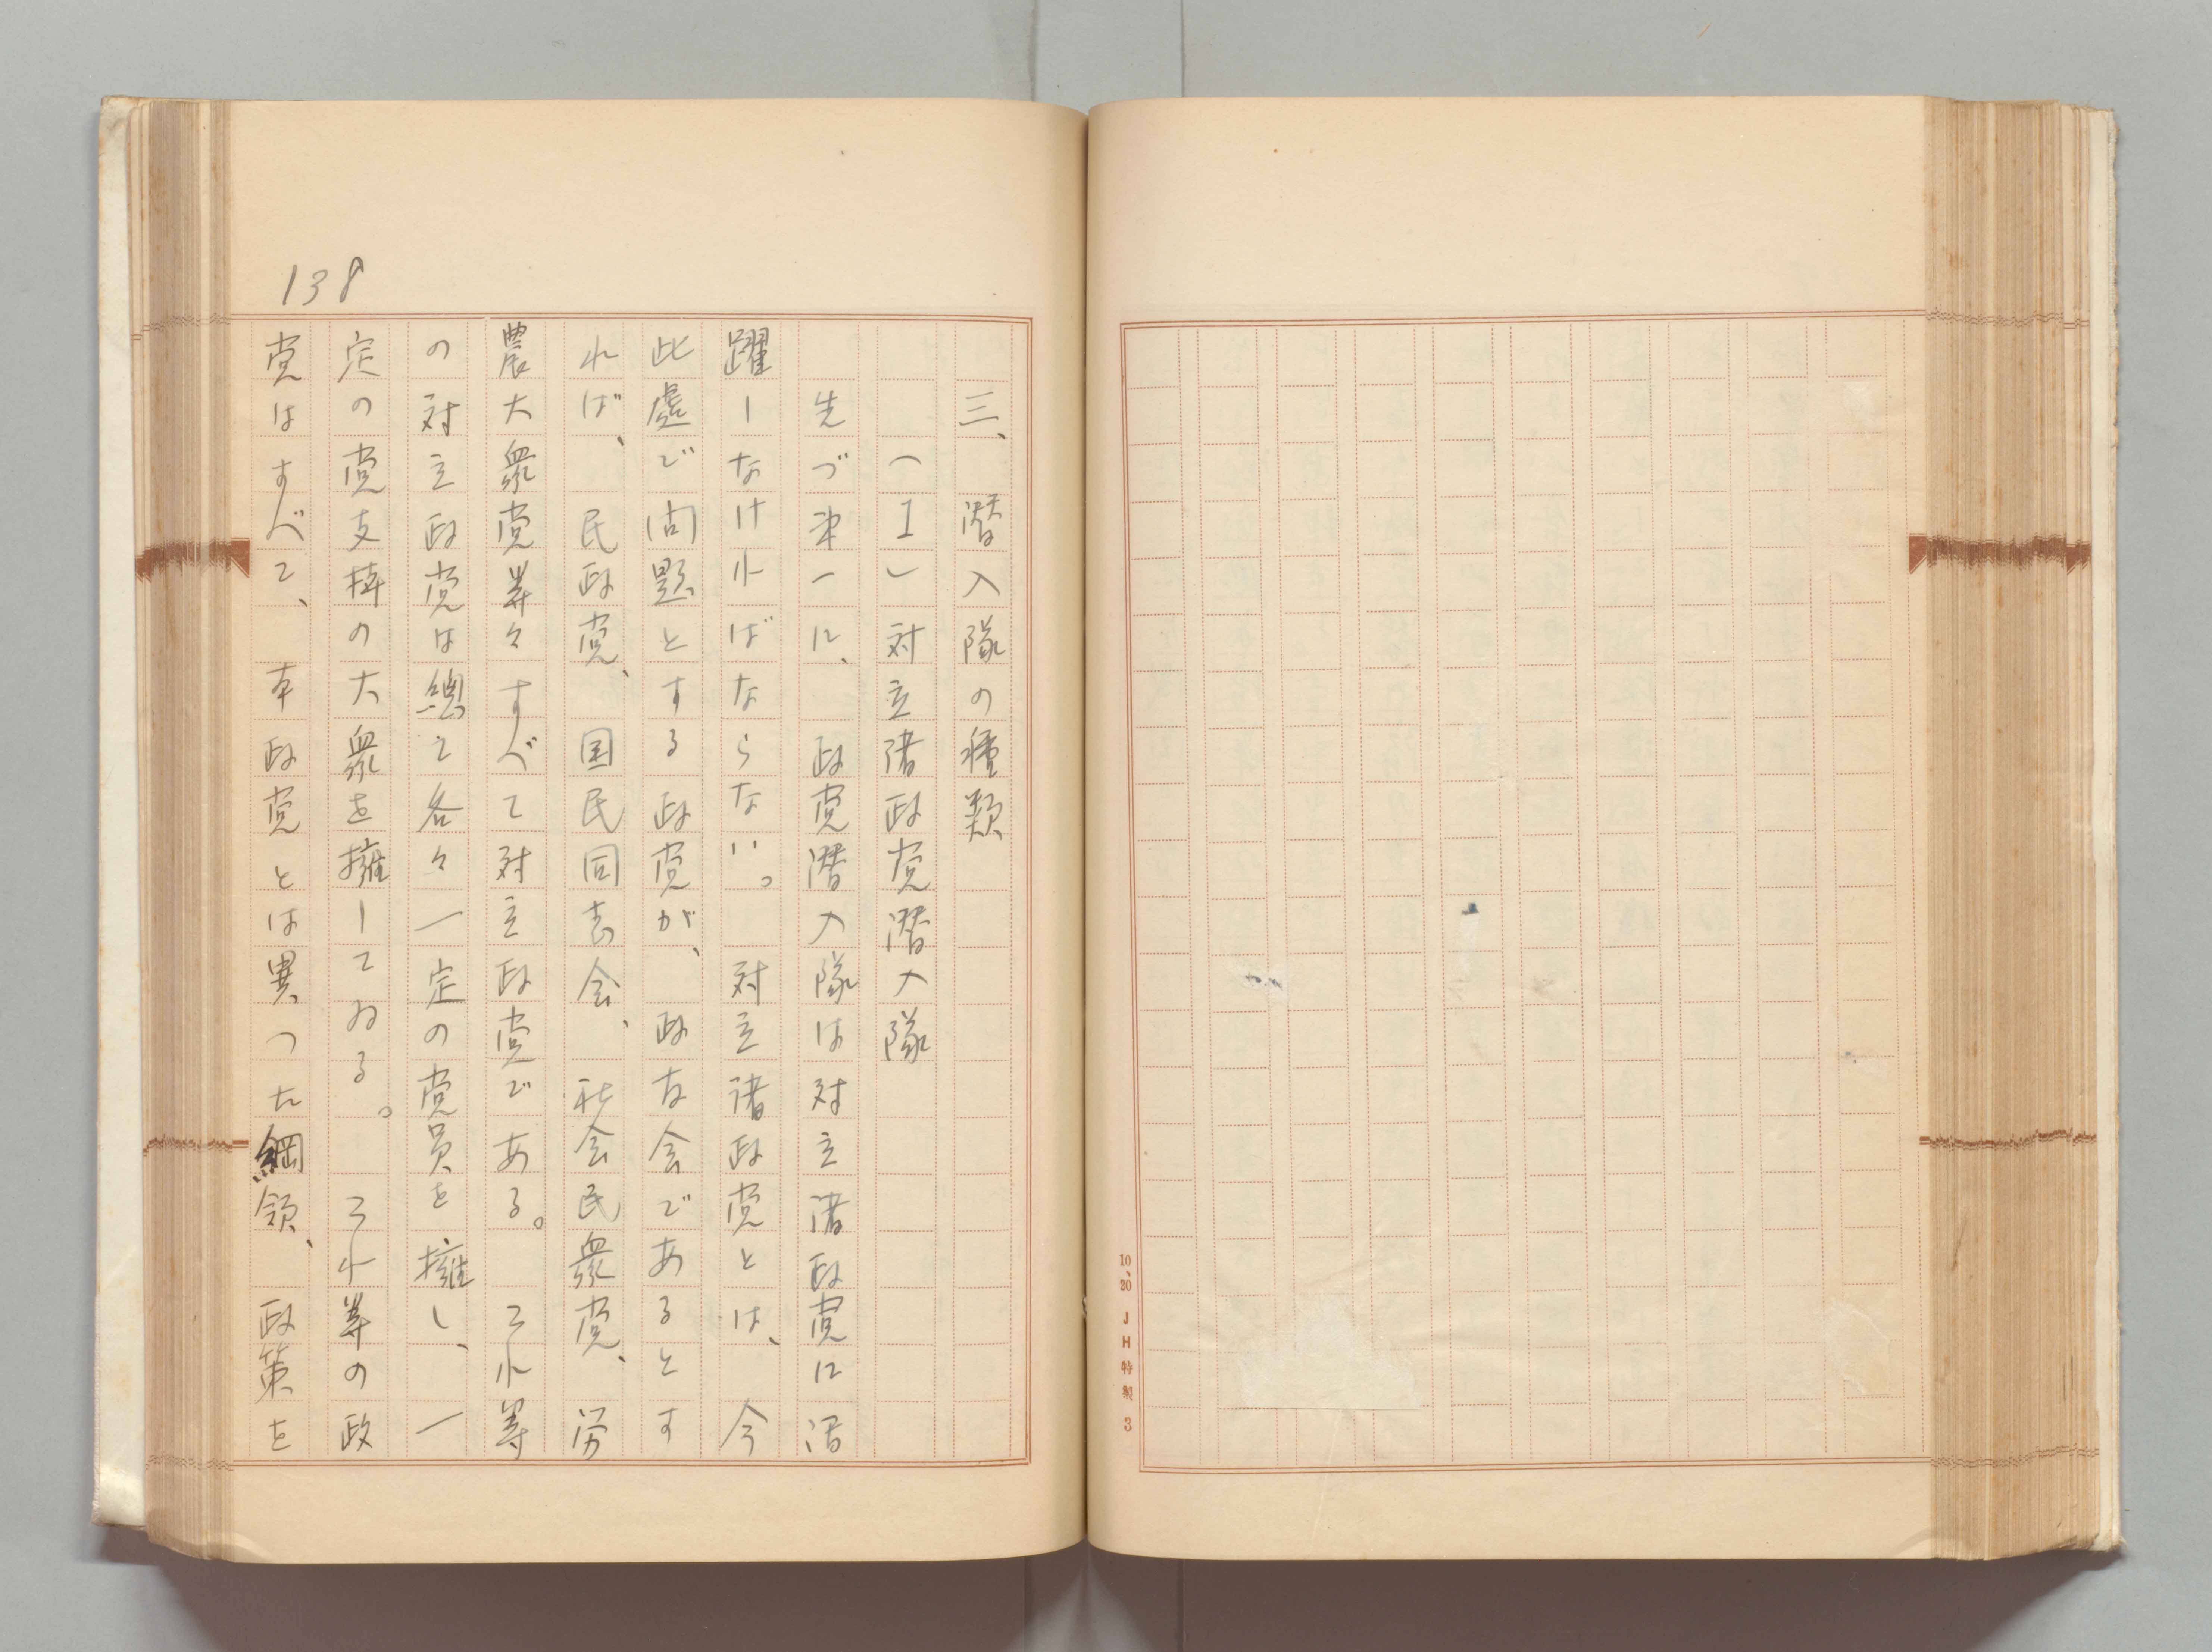 三、潜入隊の種類
(1)対立諸政党潜入隊
先づ第一に、政党潜入隊は対立諸政党に活
躍しなければならない。対立諸政党とは、今
此處で問題とする政党が、政友会であるとす
れば、民政党、国民同志会、社会民衆党、労
農大衆党等々すべて対立政党である。これ等
の対立政党は總て各々一定の党員を擁し、一
定の党支持の大衆を擁してゐる。これ等の政
党はすべて、本政党とは異つた綱領、政策を
138
10、20 JH特製 3